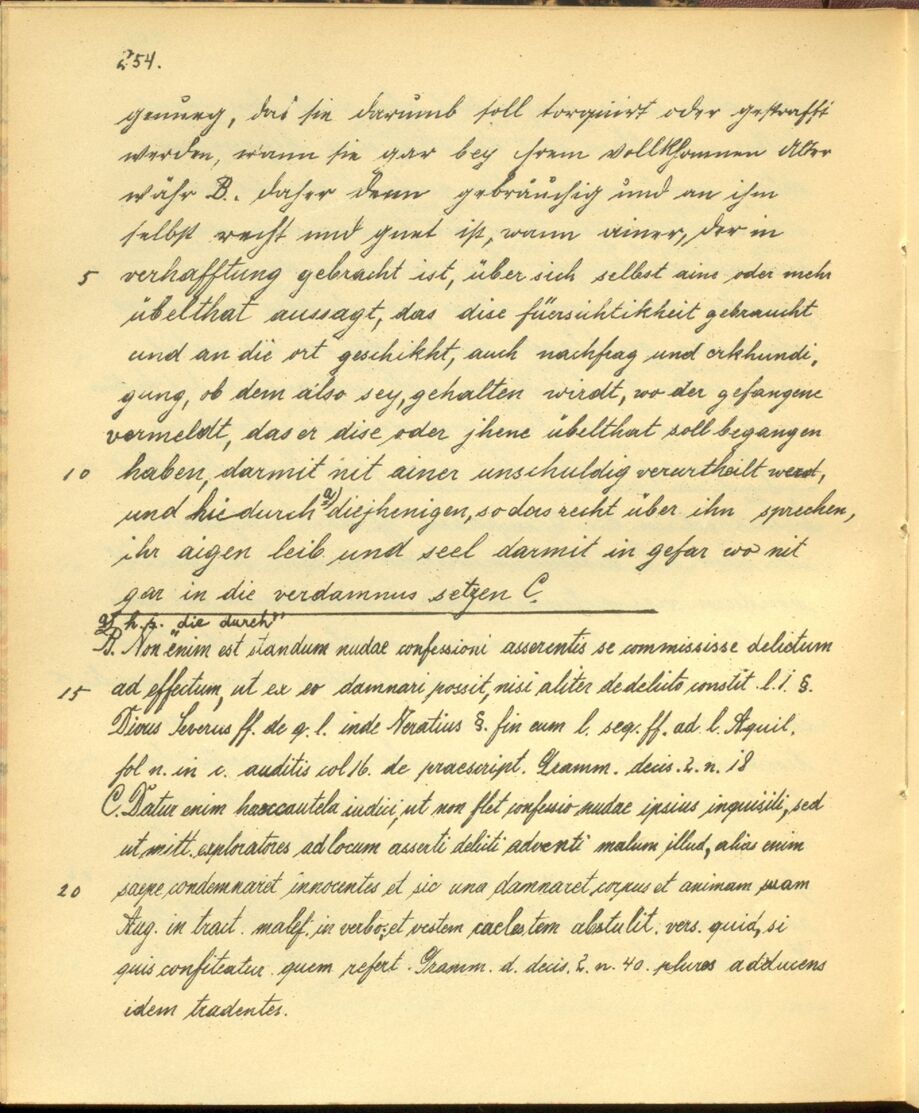 254.
genueg, das sie darumb soll torquirt oder gestrafft
werden, wann sie gar bey ihrem vollkhomnen Alter
währ B. daher denn gebräuchig und an ihm
selbst recht und guet ist, wann ainer, der in
5 verhafftung gebracht ist, über sich selbst ains oder mehr
übelthat aussagt, das dise füersichtikheit gebraucht
und an die ort geschikht, auch nachfrag und erkhundi,
gung, ob dem also sey, gehalten wirdt, wo der gefangene
vermeldt, das er dise oder jhene übelthat soll begangen
10 haben, darmit nit ainer unschuldig verurtheilt werd,
und hie durch a) diejhenigen, so das recht über ihn sprechen,
ihr aigen leib und seel darmit in gefar wo nit
gar in die verdamnus setzen C.
a) h. s. "die durch"
B. Non enim est standum nudae confessioni asserentis se commississe delictum
15 ad effectum, ut ex eo damnari possit, nisi aliter de delicto constit. l. 1. §.
Divus Severus ff. de q. l. inde Neratius §. fin cum l. seq. ff. ad l. Aquil.
fol n. in c. auditis col 16. de praescript. Gramm. decis. 2. n. 18
C. Datur enim haec cautela iudici, ut non stet confessio nudae ipsius inquisiti, sed
ut mitt. exploratores ad locum asserti delicti adventi malum illud, alias enim
20 saepe condemnaret innocentes et sic una damnaret corpus et animam suam
Aug. in tract. malef. in verbo: et vestem caelestem abstulit. vers. quid, si
quis confiteatur. quem refert. Gramm. d. decis. 2. n. 40. plures adducens
idem tradentes.